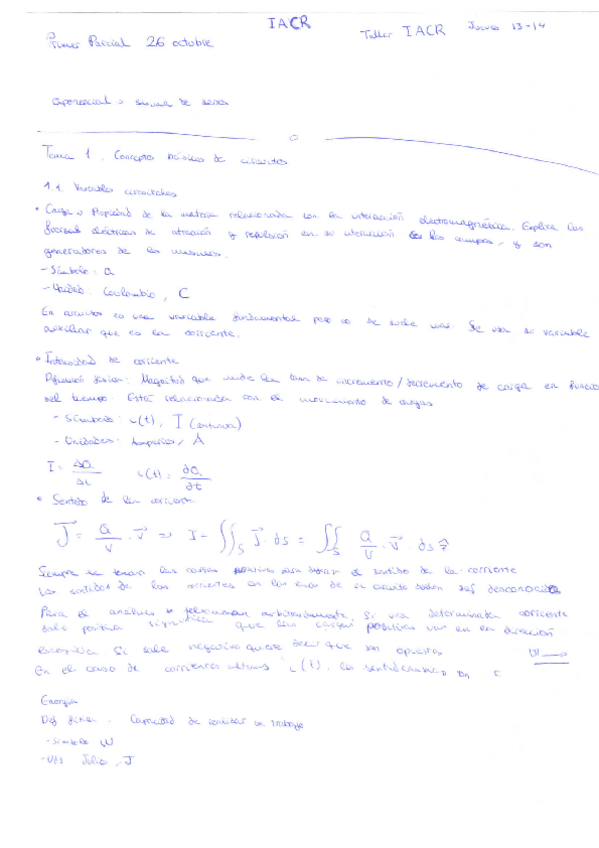 IACR
Primer Parcial 26 octubre
Taller IACR Jueves 13-14
exponencial → suma de
Tema 1. Conceptos básicos de circuitos
1.1 Variables circuitales
• Carga → Propiedad de la materia relacionada con la interacción electromagnética. Explica las
fuerzas eléctricas de atracción y repulsión en su interacción los campos, y son
generadores de los mismos.
- Símbolo: Q
- Unidad: Coulombio, C
En circuitos es una variable fundamental pero no se suele usar. Se usa su variable
auxiliar que es la corriente.
• Intensidad de corriente
Definición física: Magnitud que mide la tasa de incremento/decremento de carga en función
del tiempo. Está relacionada con el movimiento de cargas
- Símbolo: i(t), I (continua)
- Unidades: Amperios, A
I = ΔQ/Δt i(t) = dQ/dt
• Sentido de la corriente
J⃗ = Q/V · v⃗ ⇒ I = ∬_S J⃗ · ds = ∬_S Q/V · v⃗ · ds
Siempre se toman las cargas positivas para el sentido de la corriente
Los sentidos de las corrientes en las de un circuito suelen ser desconocidos
Para el análisis se seleccionan arbitrariamente. Si una determinada corriente
sale positiva significa que las cargas positivas van en la dirección
escogida. Si sale negativa quiere decir que son opuestos
En el caso de corrientes alternas i(t), los sentidos
Energía
Def física: Capacidad de realizar un trabajo
- Símbolo W
- Uds Julio, J